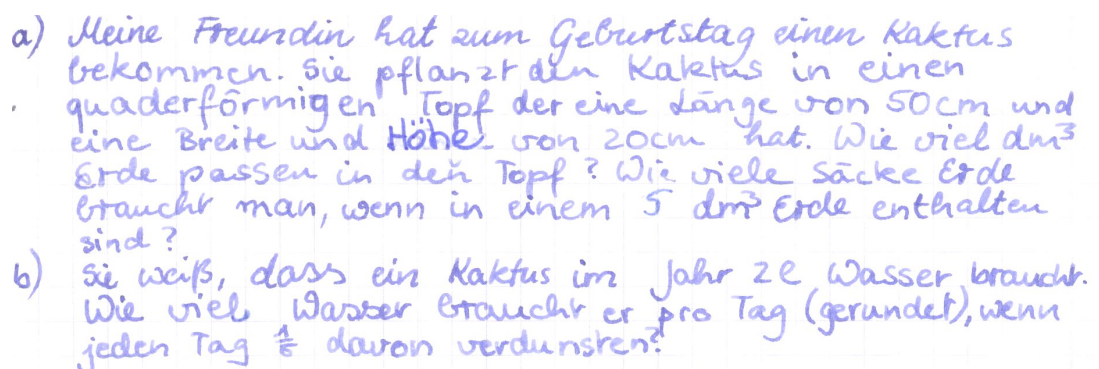 a) Meine Freundin hat zum Geburtstag einen Kaktus
bekommen. Sie pflanzt den Kaktus in einen
quaderförmigen Topf der eine Länge von 50cm und
eine Breite und Höhe von 20cm hat. Wie viel dm³
Erde passen in den Topf? Wie viele Säcke Erde
braucht man, wenn in einem 5 dm³ Erde enthalten
sind?
b) Sie weiß, dass ein Kaktus im Jahr 2l Wasser braucht.
Wie viel Wasser braucht er pro Tag (gerundet), wenn
jeden Tag 1/6 davon verdunsten?